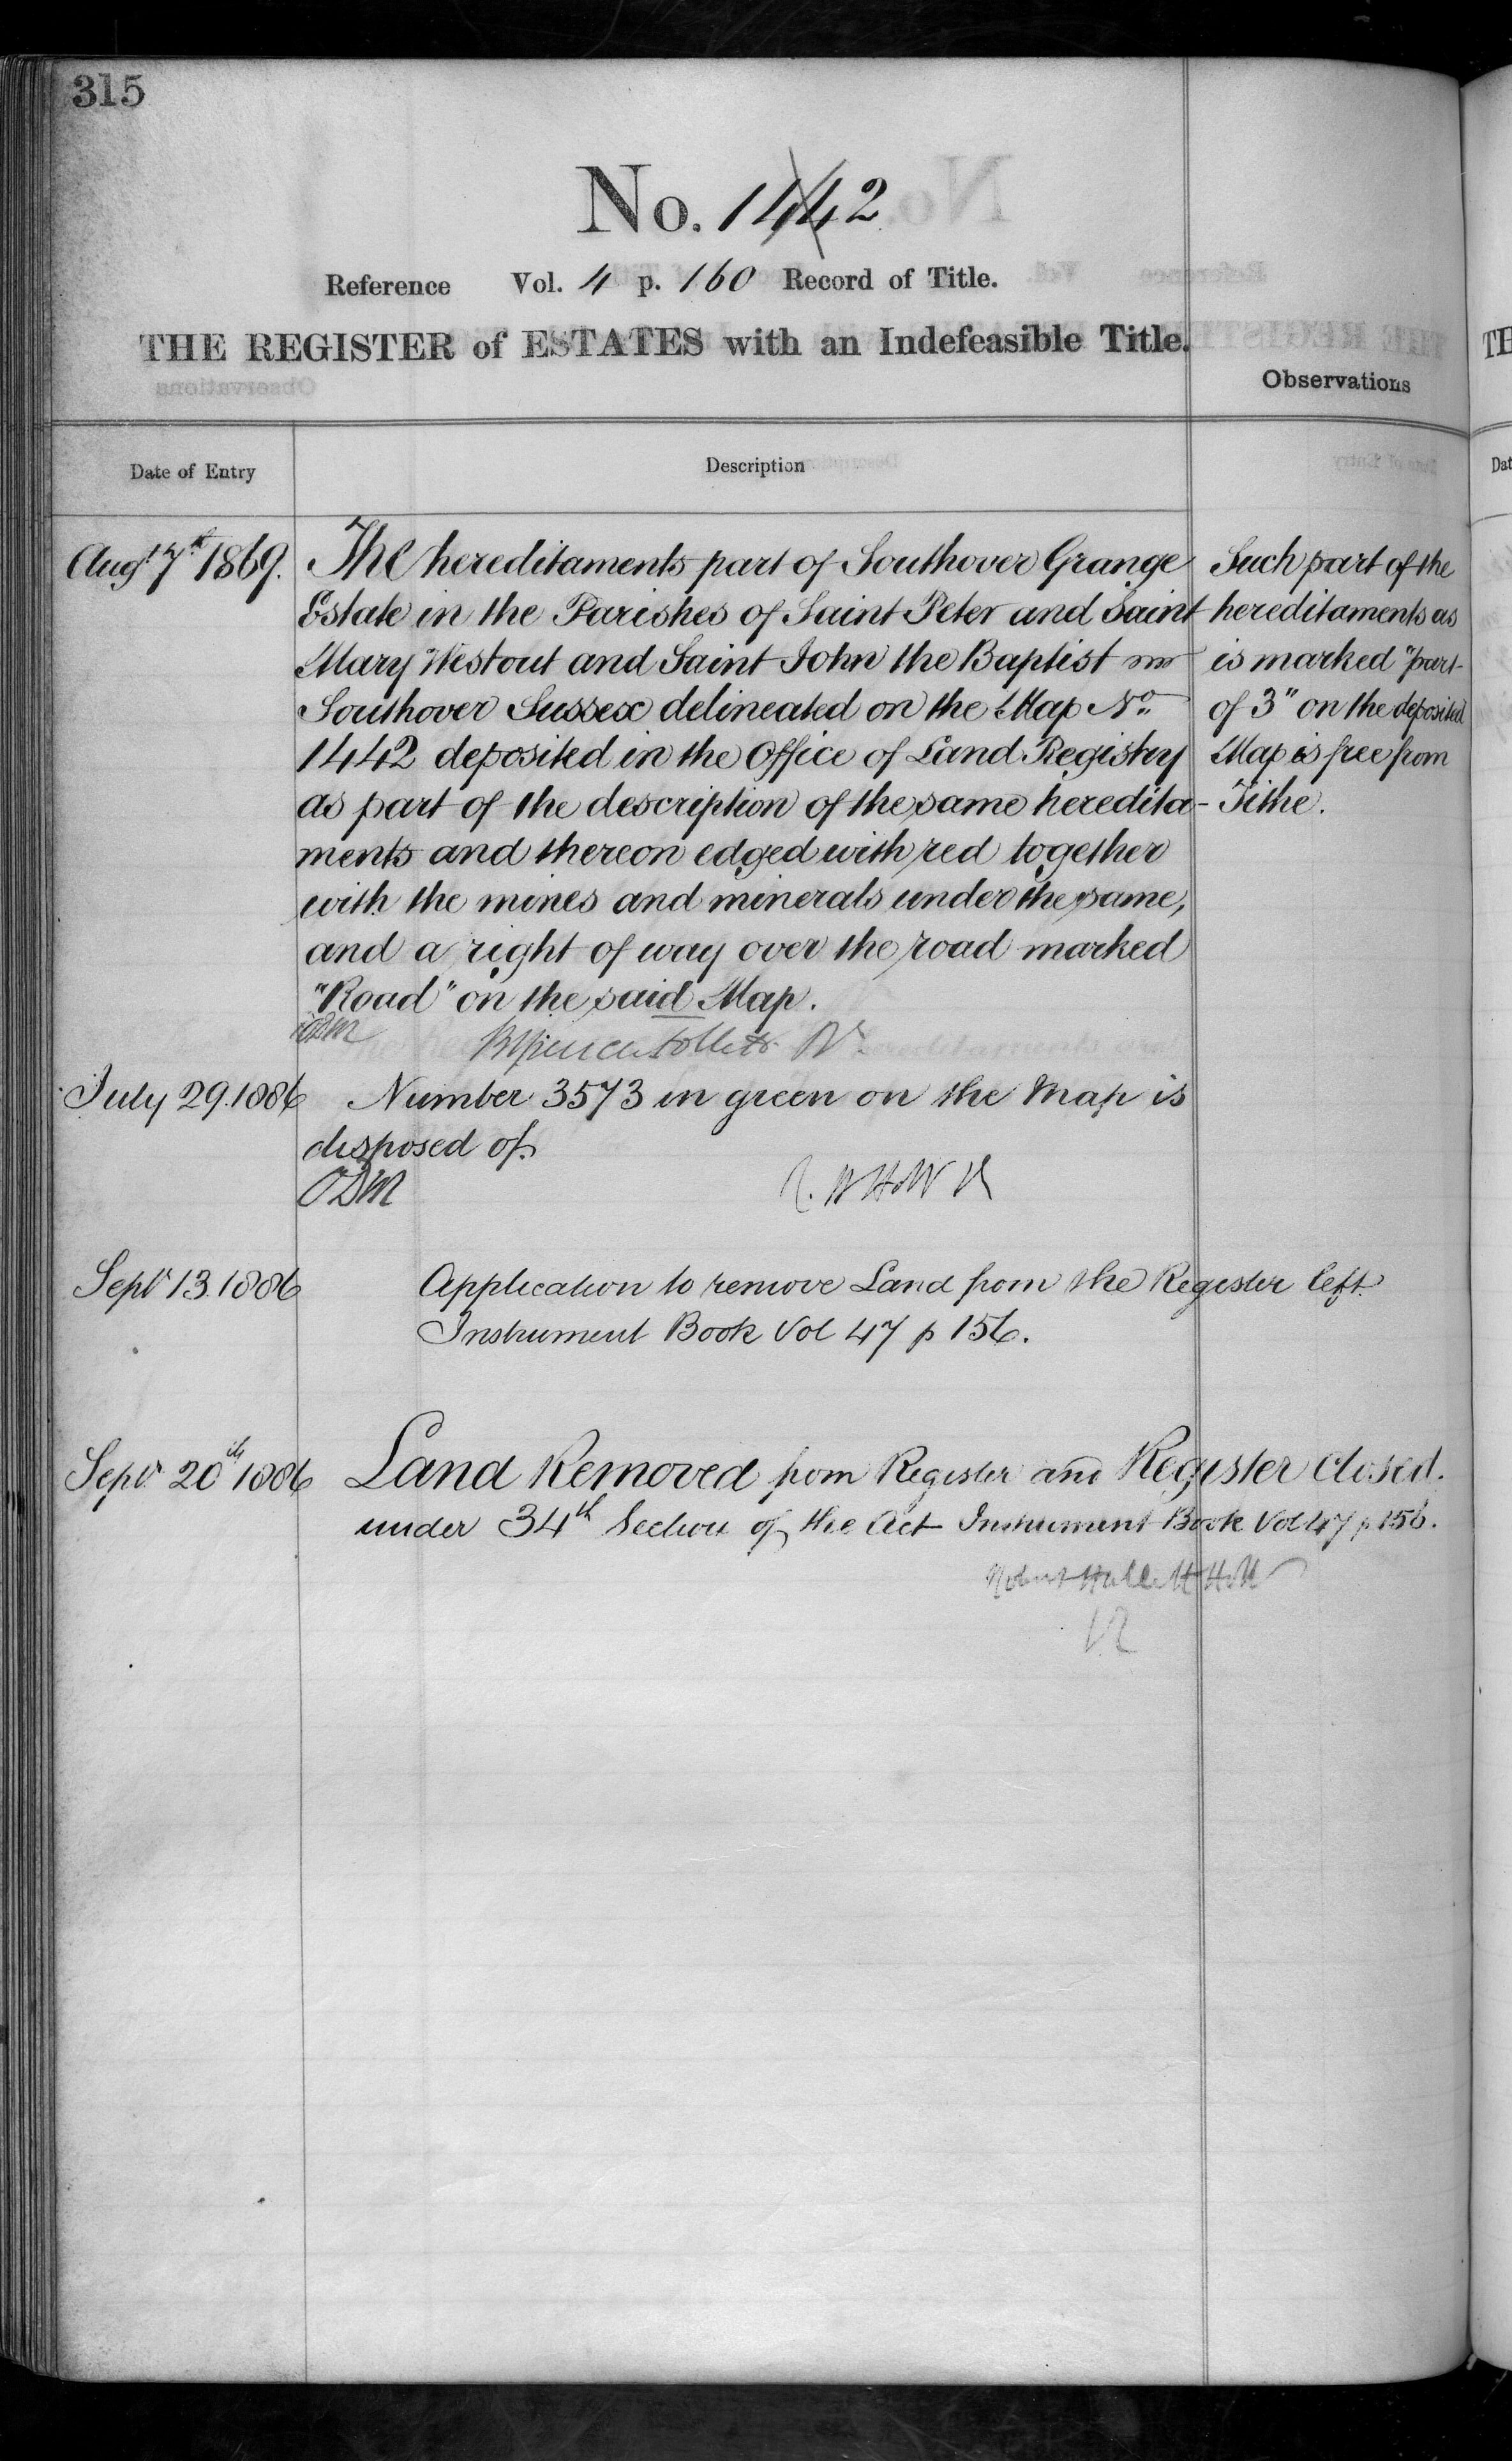 315
No. 1442
Reference Vol. 4 p. 160 Record of Title.
THE REGISTER of ESTATES with an Indefeasible Title.
Observations
Date of Entry
Description
Augt. 7th 1869.
The hereditaments part of Southover Grange
Estate in the Parishes of Saint Peter and Saint
Mary Westout and Saint John the Baptist
Southover Sussex delineated on the Map No.
1442 deposited in the Office of Land Registry
as part of the description of the same heredita-
ments and thereon edged with red together
with the mines and minerals under the same,
and a right of way over the road marked
"Road" on the said Map.
Such part of the
hereditaments as
is marked "part
of 3" on the deposited
Map is free from
Tithe.
July 29. 1886
Number 3573 in green on the Map is
disposed of.
Septr 13. 1886
Application to remove Land from the Register left.
Instrument Book Vol 47 p 156.
Septr. 20th 1886
Land Removed from Register and Register Closed.
under 34th Section of the Act Instrument Book Vol 47 p 156.
Robert Hallett Holt